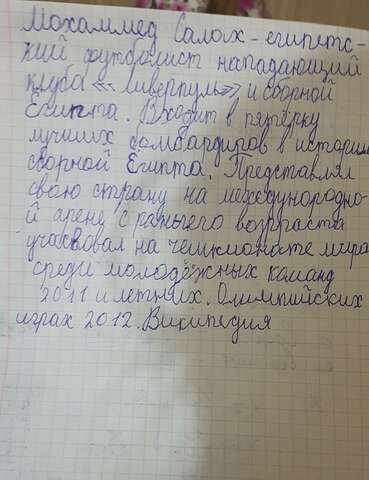 Мохаммед Салах - египетс-
кий футболист нападающий
клуба «Ливерпуль» и сборной
Египта. Входит в пятёрку
лучших бомбардиров в истории
сборной Египта. Представлял
свою страну на международно-
й арене с раннего возраста
участвовал на чемпионате мира
среди молодёжных команд
2011 и летних. Олимпийских
играх 2012. Википедия